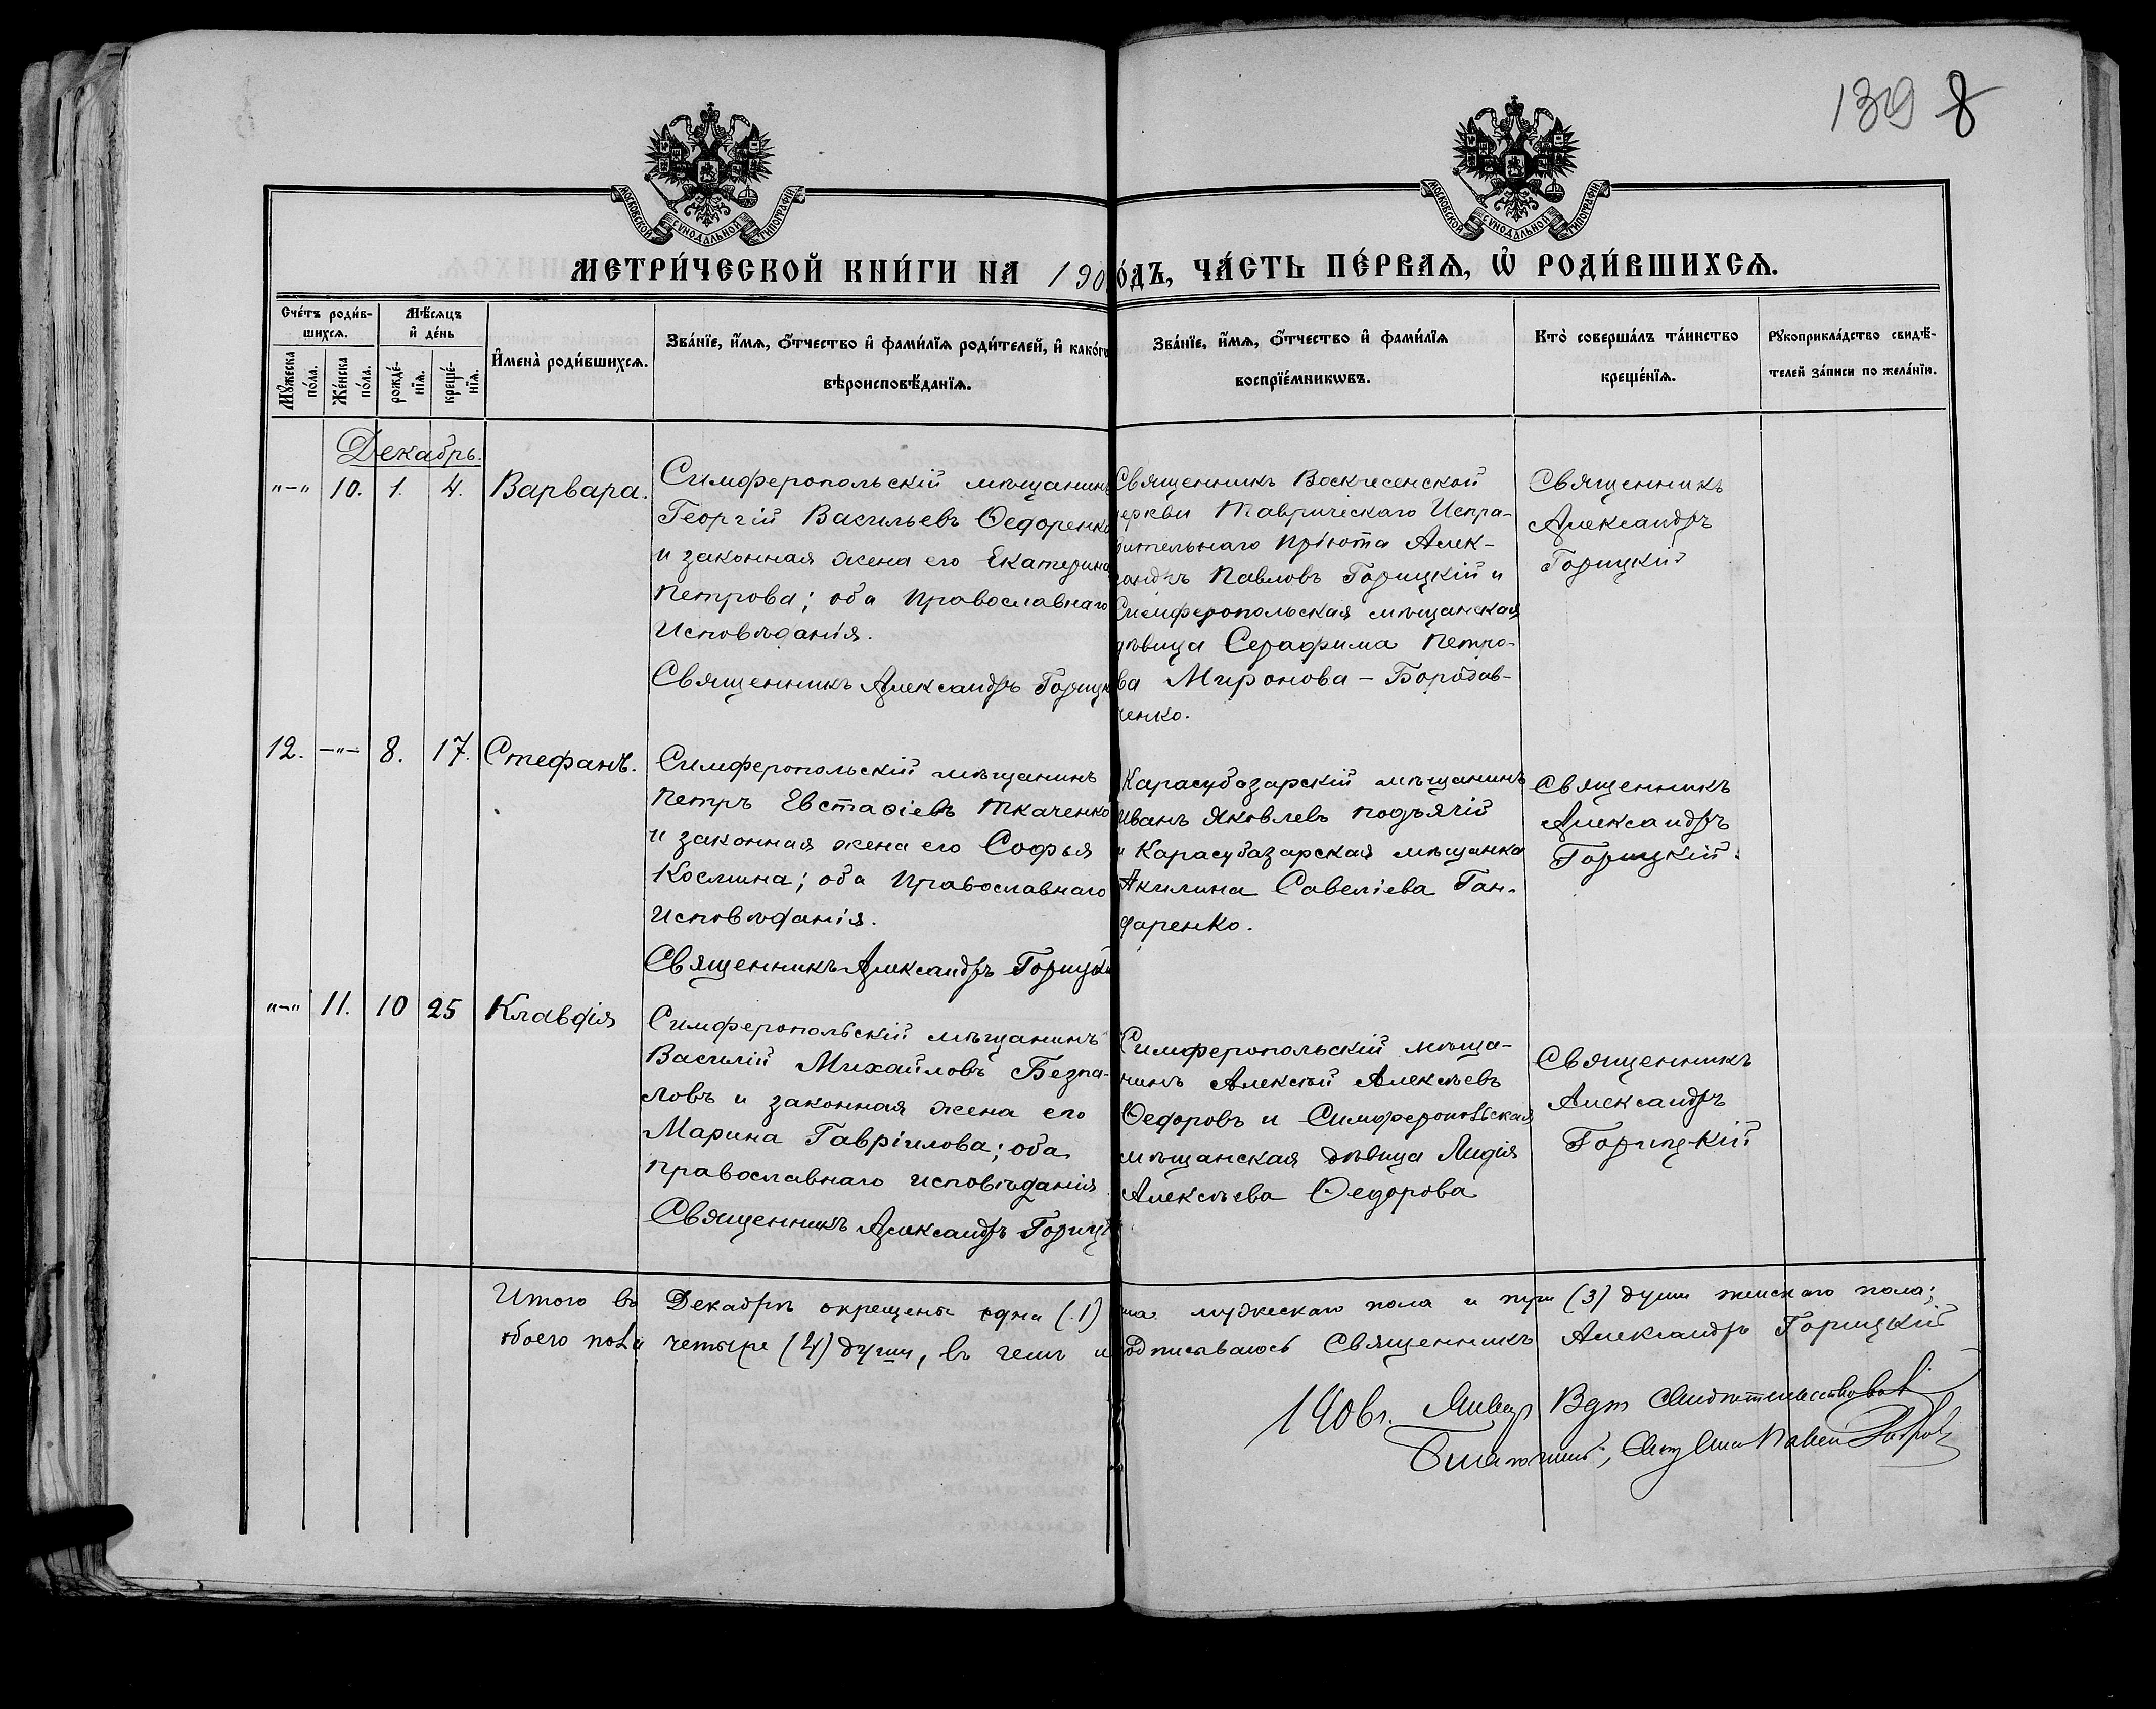 139 8
МОСКОВСКОЙ СѴНОДАЛЬНОЙ ТИПОГРАФІИ
МОСКОВСКОЙ СѴНОДАЛЬНОЙ ТИПОГРАФІИ
МЕТРИ́ЧЕСКОЙ КНИ́ГИ НА 190
О́ДЪ, ЧА́СТЬ ПЕ́РВАѦ, Ѡ҆ РОДИ́ВШИХСѦ.
Сче́тъ роди́в-
шихсѧ.
Мꙋ́жеска по́ла.
Же́нска по́ла.
Мѣ́сѧцъ
и҆ де́нь
рожде́-
нїѧ.
креще́-
нїѧ.
И҆мена̀ роди́вшихсѧ.
Зва́нїе, и҆́мѧ, ѻ҆́тчество и҆ фами́лїѧ роди́телей, и҆ како́гѡ
вѣроисповѣ́данїѧ.
Зва́нїе, и҆́мѧ, ѻ҆́тчество и҆ фами́лїѧ
воспрїе́мникѡвъ.
Кто̀ соверша́лъ та́инство
креще́нїѧ.
Рꙋкоприкла́дство свидѣ́-
телей за́писи по жела́нїю.
Декабрь.
"–" 10. 1. 4. Варвара.
Симферопольскій мѣщанинъ
Георгій Васильевъ Ѳедоренко
и законная жена его Екатерина
Петрова; оба Православнаго
Исповѣданія.
Священникъ Александръ Горицк
Священникъ Воскресенской
церкви Таврическаго Испра-
вительнаго Пріюта Алек-
сандръ Павловъ Горицкій и
Симферопольская мѣщанская
дѣвица Серафима Петро-
ва Миронова – Бородав-
ченко.
Священникъ
Александръ
Горицкій
12. –"– 8. 17. Стефанъ.
Симферопольскій мѣщанинъ
Петръ Евстаѳіевъ Ткаченко
и законная жена его Софья
Космина; оба Православнаго
исповѣданія.
Священникъ Александръ Горицкі
Карасубазарскій мѣщанинъ
Иванъ Яковлевъ Подъячій
и Карасубазарская мѣщанка
Акилина Савеліева Ган-
даренко.
Священникъ
Александръ
Горицкій.
"–" 11. 10 25 Клавдія
Симферопольскій мѣщанинъ
Василій Михайловъ Безпа-
ловъ и законная жена его
Марина Гавріилова; оба
православнаго исповѣданія
Священникъ Александръ Гориц
Симферопольскій мѣща-
нинъ Алексѣй Алексѣевъ
Ѳедоровъ и Симферопольская
мѣщанская дѣвица Лидія
Алексѣева Ѳедорова
Священникъ
Александръ
Горицкій
Итого въ Декабрѣ окрещены одна (1) ша мужескаго пола и три (3) души женскаго пола;
обоего пола четыре (4) души, въ чемъ и подписываюсь Священникъ Александръ Горицкій
1906 г. Январ свидѣтельствовалъ
Благочинный, Павел